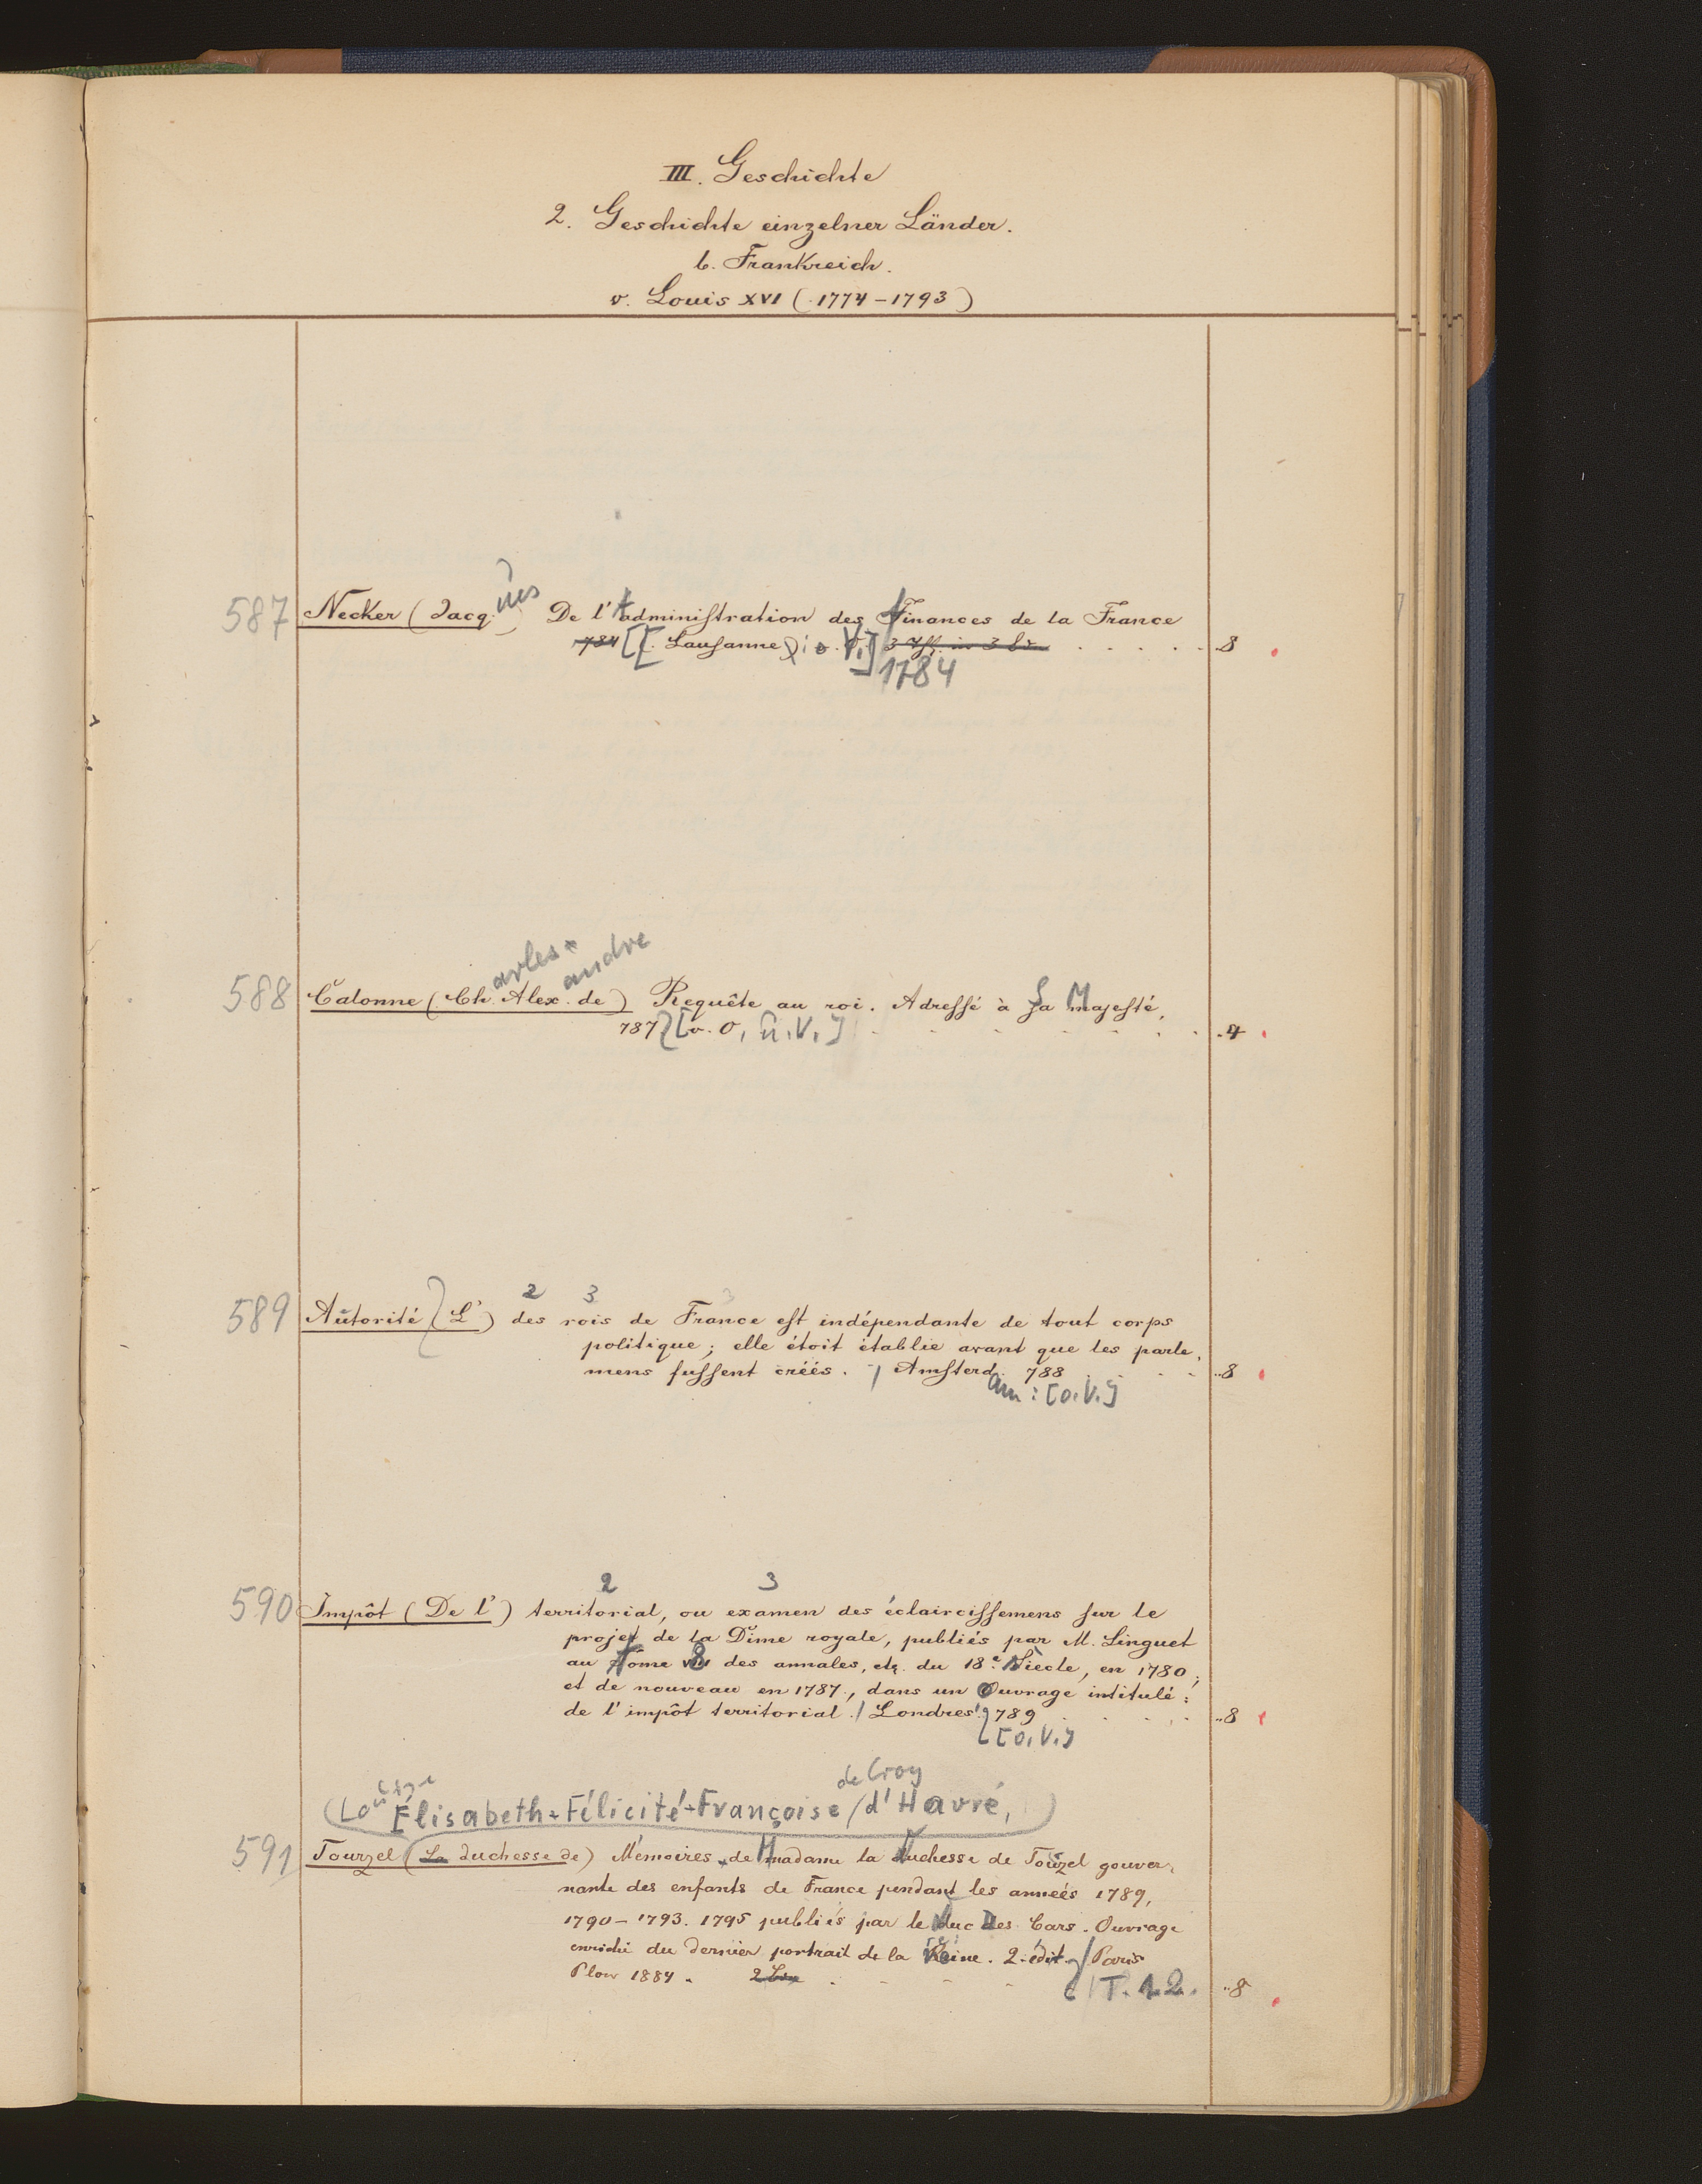 III. Geschichte
2. Geschichte einzelner Länder.
b. Frankreich.
v. Louis XVI (1774-1793)
587 Necker (Jacq. ues) De l'administration des Finances de la France
784 [[. Lausanne); o. V.] 3 in 3 . . . . . 8
1784
arles- andre
588 Calonne (Ch. Alex. de) Requête au roi. Adressé à Sa Majesté,
787 [o. O. u. V.] . . . . . 4
2 3 3
589 Autorité (L') des rois de France est indépendante de tout corps
politique; elle étoit établie avant que les parle-
mens fussent créés. / Amsterd. 788 . . . 8
am: [o. V.]
2 3
590 Impôt (De l') territorial, ou examen des éclaircissemens sur le
projet de la Dîme royale, publiés par M. Linguet
au Tome 8 des annales, etc. du 18.e Siècle, en 1780;
et de nouveau en 1787., dans un Ouvrage intitulé:
de l'impôt territorial. / Londres 789 . . . . 8
[o. V.]
de Croy
(Louise Élisabeth-Félicité-Françoise / d'Havré,)
591 Tourzel (La duchesse de) Mémoires de Madame la duchesse de Touzel gouver-
nante des enfants de France pendant les années 1789,
1790-1793. 1795 publiés par le duc Des Cars. Ouvrage
enrichi du dernier portrait de la Reine. 2. édit. / Paris
Plon 1884. 2 . . . . 8
T. 1.2.